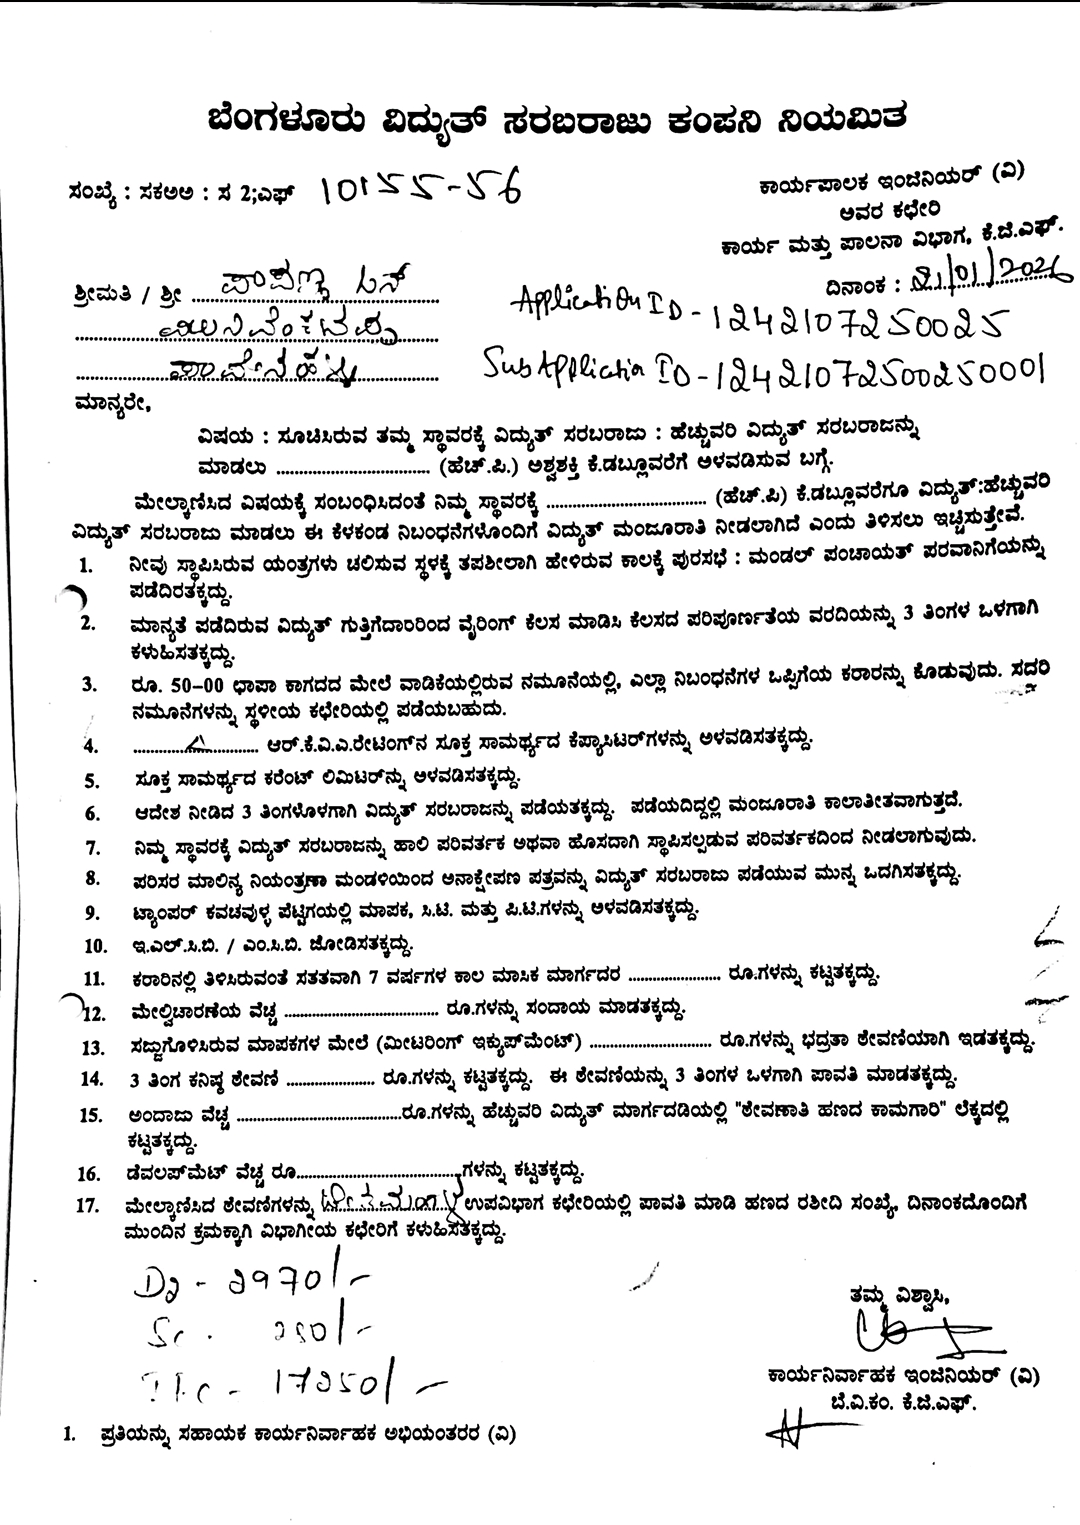 ಬೆಂಗಳೂರು ವಿದ್ಯುತ್ ಸರಬರಾಜು ಕಂಪನಿ ನಿಯಮಿತ
ಸಂಖ್ಯೆ : ಸಕಅಅ : ಸ 2;ಎಫ್ 10155-56
ಕಾರ್ಯಪಾಲಕ ಇಂಜಿನಿಯರ್ (ವಿ)
ಅವರ ಕಛೇರಿ
ಕಾರ್ಯ ಮತ್ತು ಪಾಲನಾ ವಿಭಾಗ, ಕೆ.ಜಿ.ಎಫ್.
ದಿನಾಂಕ : 21/01/2026
ಶ್ರೀಮತಿ / ಶ್ರೀ ಪಾಪಣ್ಣ ಬಿನ್
Application ID - 1242107250025
Sub Application ID - 12421072500250001
ಮಾನ್ಯರೇ,
ವಿಷಯ : ಸೂಚಿಸಿರುವ ತಮ್ಮ ಸ್ಥಾವರಕ್ಕೆ ವಿದ್ಯುತ್ ಸರಬರಾಜು : ಹೆಚ್ಚುವರಿ ವಿದ್ಯುತ್ ಸರಬರಾಜನ್ನು
ಮಾಡಲು .............................. (ಹೆಚ್.ಪಿ.) ಅಶ್ವಶಕ್ತಿ ಕೆ.ಡಬ್ಲೂವರೆಗೆ ಅಳವಡಿಸುವ ಬಗ್ಗೆ.
ಮೇಲ್ಕಾಣಿಸಿದ ವಿಷಯಕ್ಕೆ ಸಂಬಂಧಿಸಿದಂತೆ ನಿಮ್ಮ ಸ್ಥಾವರಕ್ಕೆ .............................. (ಹೆಚ್.ಪಿ) ಕೆ.ಡಬ್ಲೂವರೆಗೂ ವಿದ್ಯುತ್:ಹೆಚ್ಚುವರಿ
ವಿದ್ಯುತ್ ಸರಬರಾಜು ಮಾಡಲು ಈ ಕೆಳಕಂಡ ನಿಬಂಧನೆಗಳೊಂದಿಗೆ ವಿದ್ಯುತ್ ಮಂಜೂರಾತಿ ನೀಡಲಾಗಿದೆ ಎಂದು ತಿಳಿಸಲು ಇಚ್ಚಿಸುತ್ತೇವೆ.
1. ನೀವು ಸ್ಥಾಪಿಸಿರುವ ಯಂತ್ರಗಳು ಚಲಿಸುವ ಸ್ಥಳಕ್ಕೆ ತಪಶೀಲಾಗಿ ಹೇಳಿರುವ ಕಾಲಕ್ಕೆ ಪುರಸಭೆ : ಮಂಡಲ್ ಪಂಚಾಯತ್ ಪರವಾನಿಗೆಯನ್ನು
ಪಡೆದಿರತಕ್ಕದ್ದು.
2. ಮಾನ್ಯತೆ ಪಡೆದಿರುವ ವಿದ್ಯುತ್ ಗುತ್ತಿಗೆದಾರರಿಂದ ವೈರಿಂಗ್ ಕೆಲಸ ಮಾಡಿಸಿ ಕೆಲಸದ ಪರಿಪೂರ್ಣತೆಯ ವರದಿಯನ್ನು 3 ತಿಂಗಳ ಒಳಗಾಗಿ
ಕಳುಹಿಸತಕ್ಕದ್ದು.
3. ರೂ. 50-00 ಛಾಪಾ ಕಾಗದದ ಮೇಲೆ ವಾಡಿಕೆಯಲ್ಲಿರುವ ನಮೂನೆಯಲ್ಲಿ, ಎಲ್ಲಾ ನಿಬಂಧನೆಗಳ ಒಪ್ಪಿಗೆಯ ಕರಾರನ್ನು ಕೊಡುವುದು. ಸದರಿ
ನಮೂನೆಗಳನ್ನು ಸ್ಥಳೀಯ ಕಛೇರಿಯಲ್ಲಿ ಪಡೆಯಬಹುದು.
4. .............................. ಆರ್.ಕೆ.ವಿ.ಎ.ರೇಟಿಂಗ್‌ನ ಸೂಕ್ತ ಸಾಮರ್ಥ್ಯದ ಕೆಪ್ಯಾಸಿಟರ್‌ಗಳನ್ನು ಅಳವಡಿಸತಕ್ಕದ್ದು.
5. ಸೂಕ್ತ ಸಾಮರ್ಥ್ಯದ ಕರೆಂಟ್ ಲಿಮಿಟರ್‌ನ್ನು ಅಳವಡಿಸತಕ್ಕದ್ದು.
6. ಆದೇಶ ನೀಡಿದ 3 ತಿಂಗಳೊಳಗಾಗಿ ವಿದ್ಯುತ್ ಸರಬರಾಜನ್ನು ಪಡೆಯತಕ್ಕದ್ದು. ಪಡೆಯದಿದ್ದಲ್ಲಿ ಮಂಜೂರಾತಿ ಕಾಲಾತೀತವಾಗುತ್ತದೆ.
7. ನಿಮ್ಮ ಸ್ಥಾವರಕ್ಕೆ ವಿದ್ಯುತ್ ಸರಬರಾಜನ್ನು ಹಾಲಿ ಪರಿವರ್ತಕ ಅಥವಾ ಹೊಸದಾಗಿ ಸ್ಥಾಪಿಸಲ್ಪಡುವ ಪರಿವರ್ತಕದಿಂದ ನೀಡಲಾಗುವುದು.
8. ಪರಿಸರ ಮಾಲಿನ್ಯ ನಿಯಂತ್ರಣಾ ಮಂಡಳಿಯಿಂದ ಅನಾಕ್ಷೇಪಣ ಪತ್ರವನ್ನು ವಿದ್ಯುತ್ ಸರಬರಾಜು ಪಡೆಯುವ ಮುನ್ನ ಒದಗಿಸತಕ್ಕದ್ದು.
9. ಟ್ಯಾಂಪರ್ ಕವಚವುಳ್ಳ ಪೆಟ್ಟಿಗೆಯಲ್ಲಿ ಮಾಪಕ, ಸಿ.ಟಿ. ಮತ್ತು ಪಿ.ಟಿ.ಗಳನ್ನು ಅಳವಡಿಸತಕ್ಕದ್ದು.
10. ಇ.ಎಲ್.ಸಿ.ಬಿ. / ಎಂ.ಸಿ.ಬಿ. ಜೋಡಿಸತಕ್ಕದ್ದು.
11. ಕರಾರಿನಲ್ಲಿ ತಿಳಿಸಿರುವಂತೆ ಸತತವಾಗಿ 7 ವರ್ಷಗಳ ಕಾಲ ಮಾಸಿಕ ಮಾರ್ಗದರ .................... ರೂ.ಗಳನ್ನು ಕಟ್ಟತಕ್ಕದ್ದು.
12. ಮೇಲ್ವಿಚಾರಣೆಯ ವೆಚ್ಚ .............................. ರೂ.ಗಳನ್ನು ಸಂದಾಯ ಮಾಡತಕ್ಕದ್ದು.
13. ಸಜ್ಜುಗೊಳಿಸಿರುವ ಮಾಪಕಗಳ ಮೇಲೆ (ಮೀಟರಿಂಗ್ ಇಕ್ಯುಪ್‌ಮೆಂಟ್) ......................... ರೂ.ಗಳನ್ನು ಭದ್ರತಾ ಠೇವಣಿಯಾಗಿ ಇಡತಕ್ಕದ್ದು.
14. 3 ತಿಂಗ ಕನಿಷ್ಠ ಠೇವಣಿ .................... ರೂ.ಗಳನ್ನು ಕಟ್ಟತಕ್ಕದ್ದು. ಈ ಠೇವಣಿಯನ್ನು 3 ತಿಂಗಳ ಒಳಗಾಗಿ ಪಾವತಿ ಮಾಡತಕ್ಕದ್ದು.
15. ಅಂದಾಜು ವೆಚ್ಚ ..............................ರೂ.ಗಳನ್ನು ಹೆಚ್ಚುವರಿ ವಿದ್ಯುತ್ ಮಾರ್ಗದಡಿಯಲ್ಲಿ "ಠೇವಣಾತಿ ಹಣದ ಕಾಮಗಾರಿ" ಲೆಕ್ಕದಲ್ಲಿ
ಕಟ್ಟತಕ್ಕದ್ದು.
16. ಡೆವಲಪ್‌ಮೆಟ್ ವೆಚ್ಚ ರೂ..............................ಗಳನ್ನು ಕಟ್ಟತಕ್ಕದ್ದು.
17. ಮೇಲ್ಕಾಣಿಸಿದ ಠೇವಣಿಗಳನ್ನು ಉಪವಿಭಾಗ ಕಛೇರಿಯಲ್ಲಿ ಪಾವತಿ ಮಾಡಿ ಹಣದ ರಶೀದಿ ಸಂಖ್ಯೆ, ದಿನಾಂಕದೊಂದಿಗೆ
ಮುಂದಿನ ಕ್ರಮಕ್ಕಾಗಿ ವಿಭಾಗೀಯ ಕಛೇರಿಗೆ ಕಳುಹಿಸತಕ್ಕದ್ದು.
2970/-
250/-
17250/-
ತಮ್ಮ ವಿಶ್ವಾಸಿ,
ಕಾರ್ಯನಿರ್ವಾಹಕ ಇಂಜಿನಿಯರ್ (ವಿ)
ಬೆ.ವಿ.ಕಂ. ಕೆ.ಜಿ.ಎಫ್.
1. ಪ್ರತಿಯನ್ನು ಸಹಾಯಕ ಕಾರ್ಯನಿರ್ವಾಹಕ ಅಭಿಯಂತರರ (ವಿ)